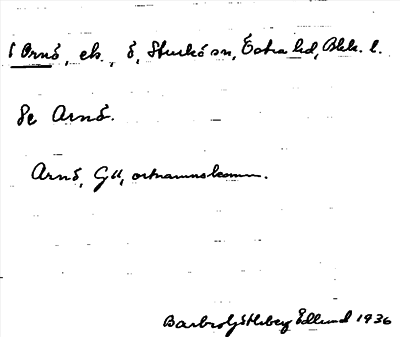 Ornö, ek., ö, Sturkö sn, Östra hd, Blek. l.
Se Arnö.
Arnö, GU, ortnamnskomm.
Barbro Götleberg Edlund 1936